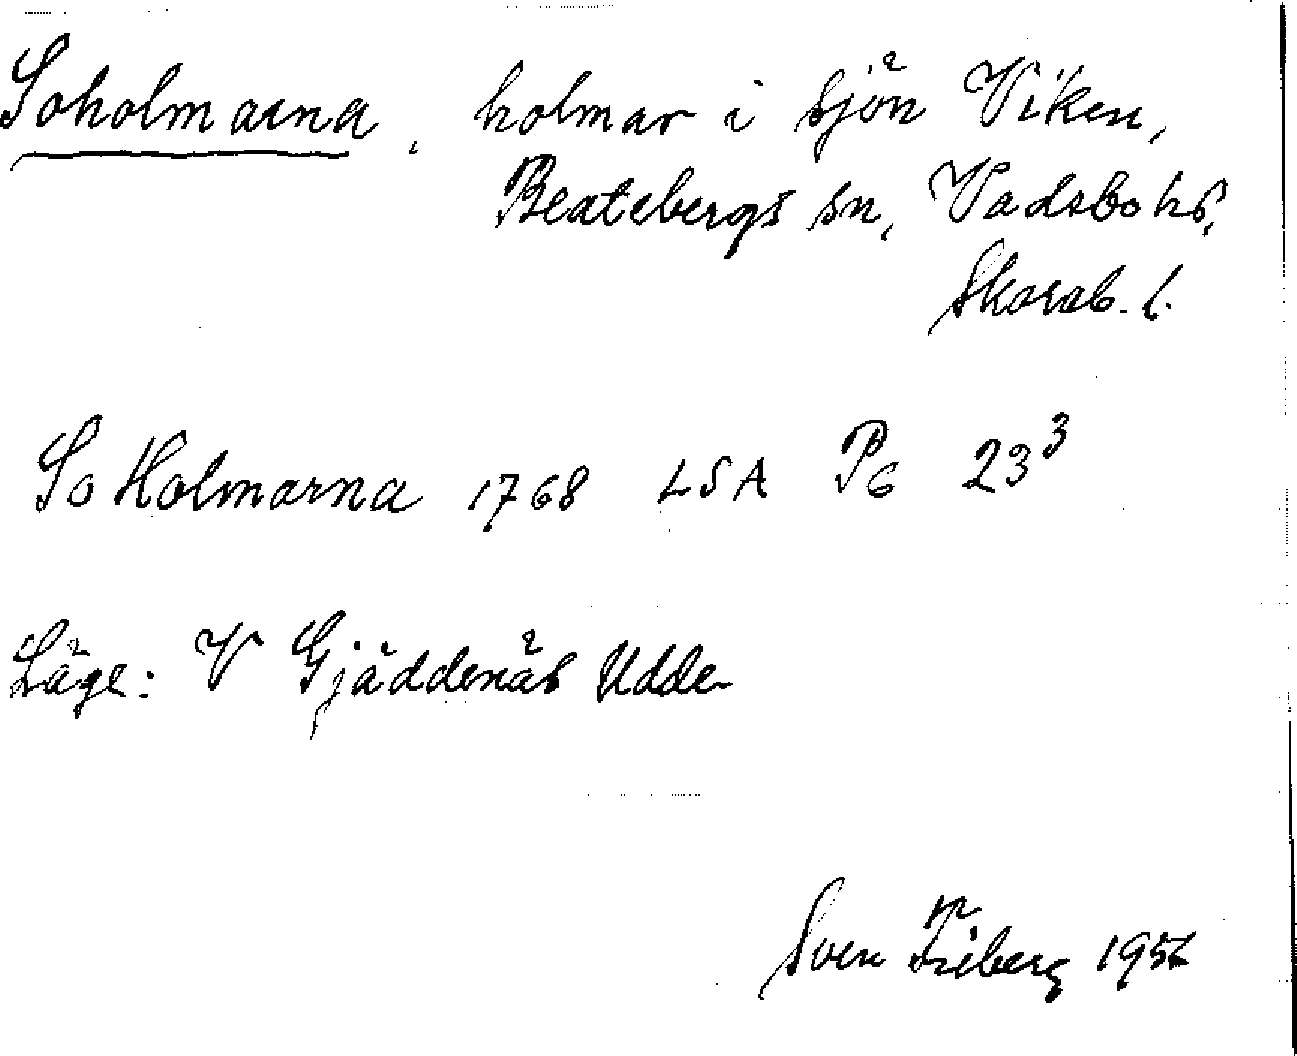 Soholmarna, holmar i sjön Viken,
Beatebergs sn, Vadsbo hd,
Skarab. l.
So Holmarna 1768 LSA P6 23³
Läge: V Gjäddenäs Udde
Sven Friberg